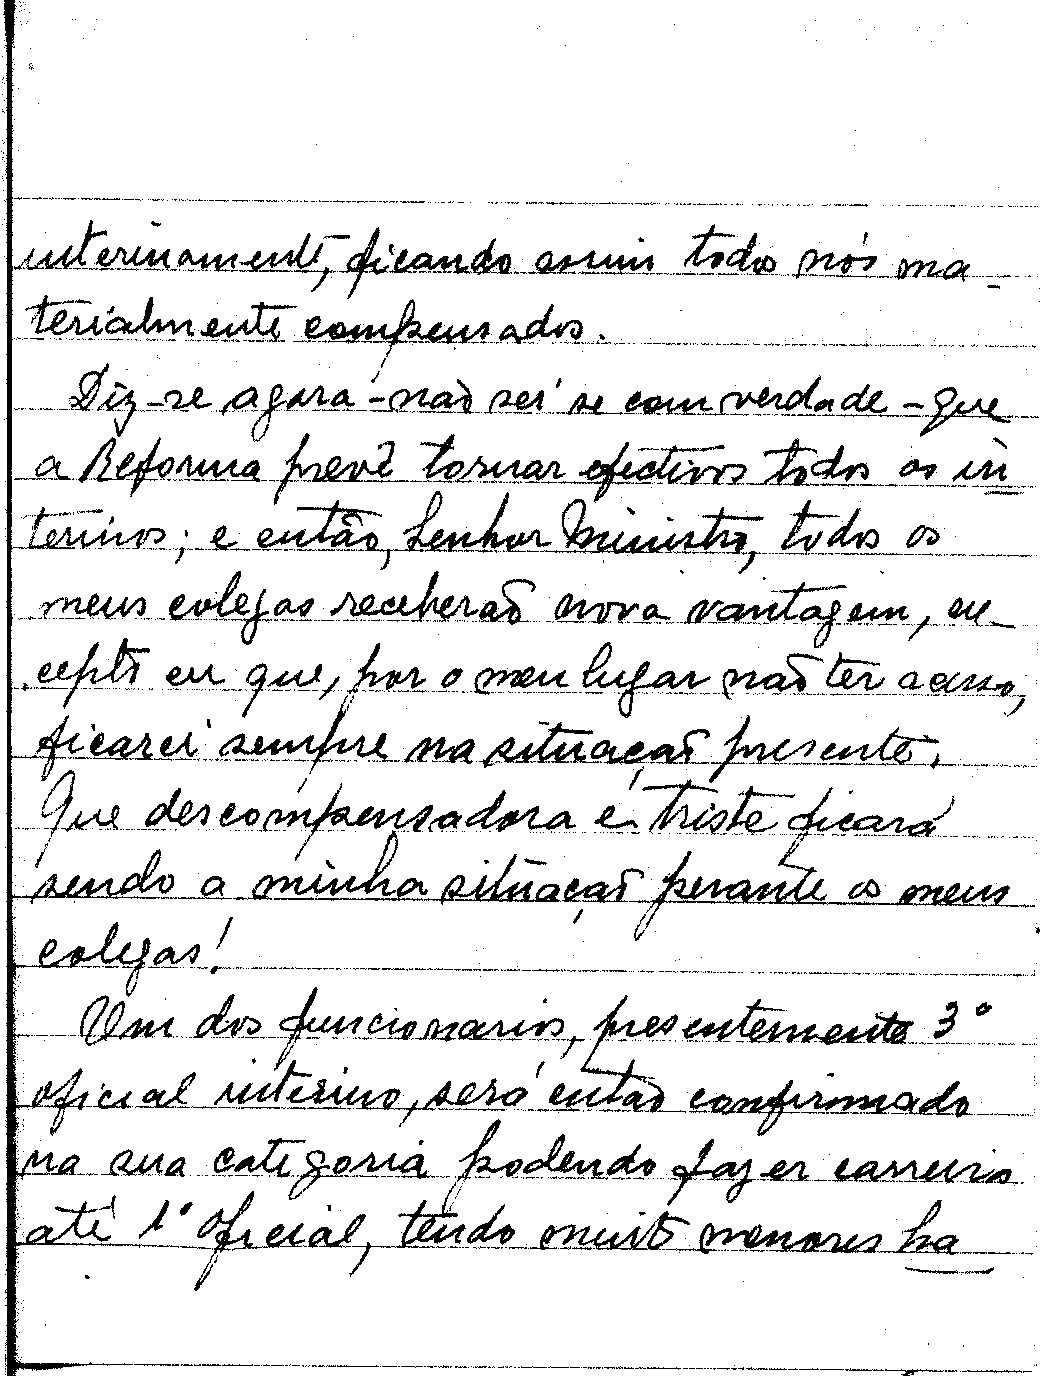 interinamente, ficando assim todos nós ma-
terialmente compensados.
Diz-se agora - não sei se com verdade - que
a Reforma prevê tornar efectivos todos os in
terinos; e então, Senhor Ministro, todos os
meus colegas receberão nova vantagem, ex-
cepto eu que, por o meu lugar não ter acesso,
ficarei sempre na situação presente.
Que descompensadora e triste ficará
sendo a minha situação perante os meus
colegas!
Um dos funcionarios, presentemente 3º
oficial interino, será então confirmado
na sua categoria podendo fazer carreira
até 1º oficial, tendo muito menores ha